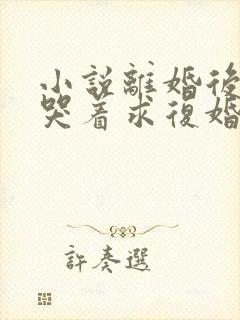 小說離婚後
哭着求復婚
許奏選